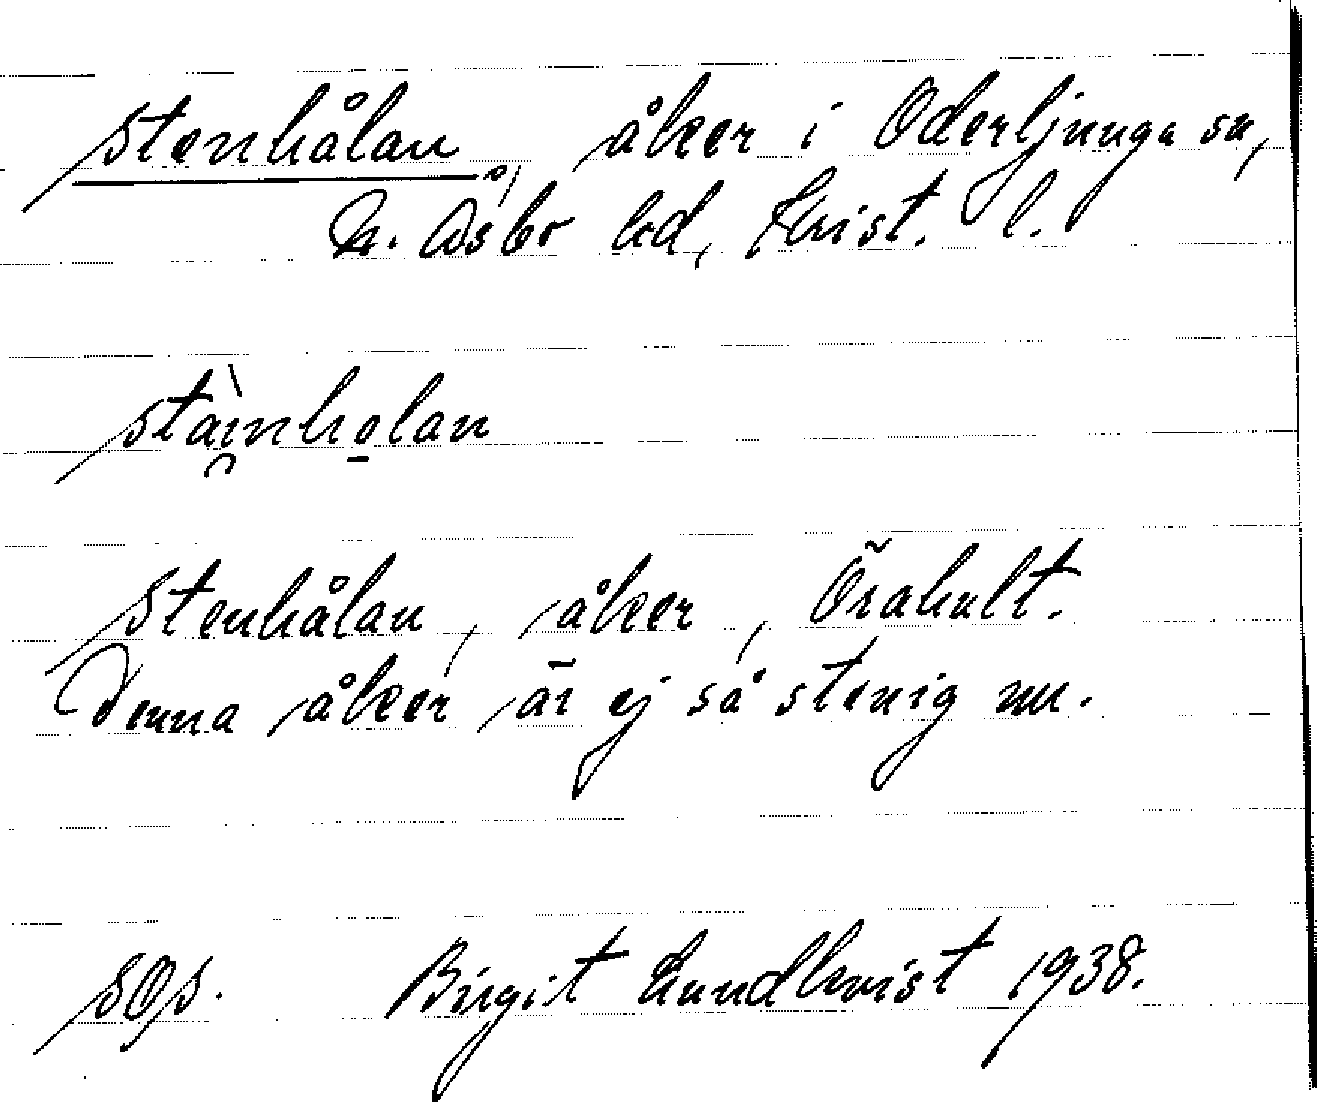 Stenhålan, åker i Oderljunga sn,
N. Åsbo hd, Krist. l.
stàinho̲lan
Stenhålan, åker, Örahult.
Denna åker är ej så stenig nu.
SOS. Birgit Lundkvist 1938.